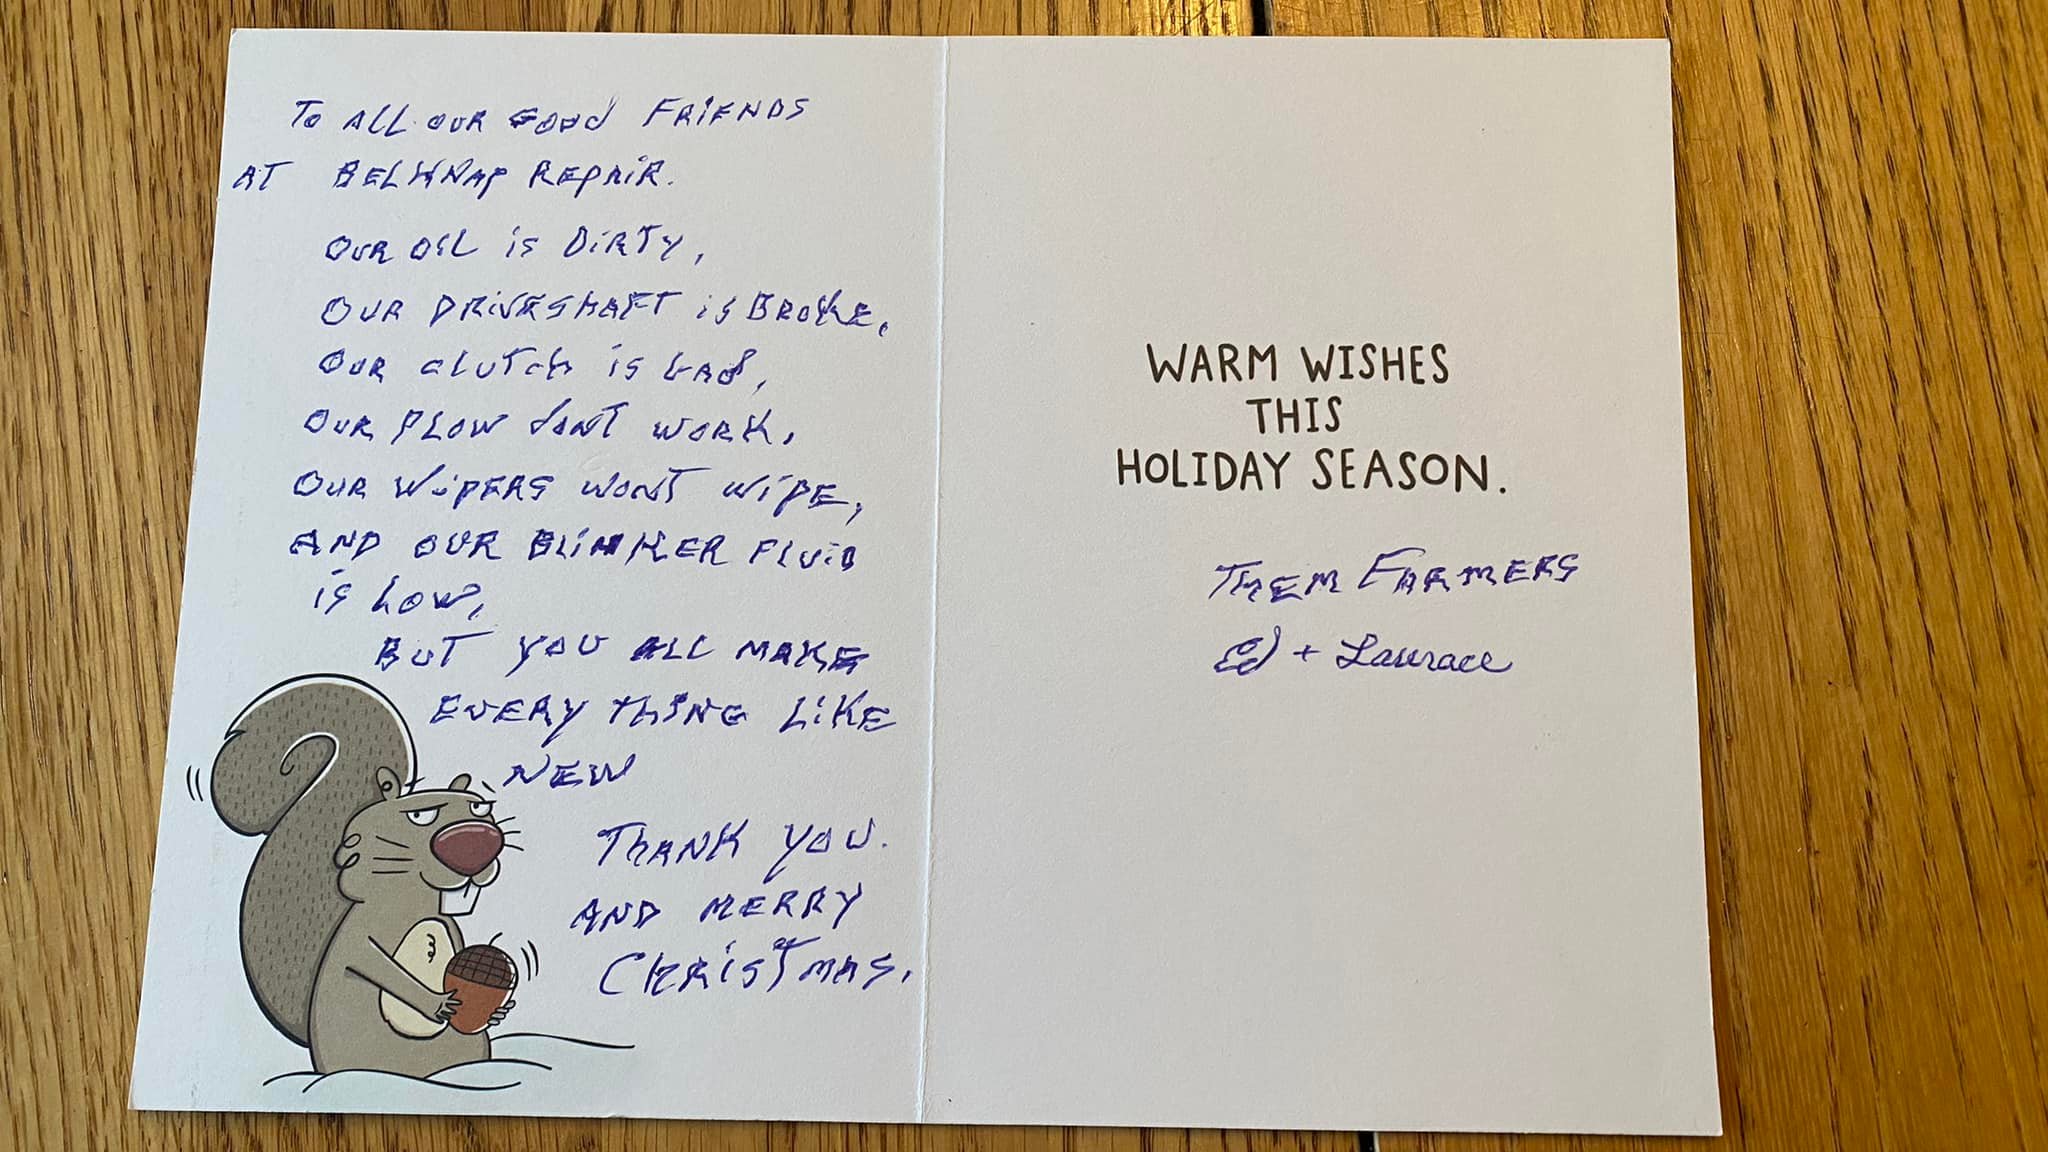 To ALL OUR GOOD FRIENDS
AT BELKNAP REPAIR.
OUR OIL iS DiRTY,
OUR DRIVESHAFT iS BROKE,
OUR CLUTCH iS BAD,
OUR PLOW DONT WORK,
OUR WIPERS WONT WIPE,
AND OUR BLINKER FLUID
iS LOW,
BUT YOU ALL MAKE
EVERY THING LIKE
NEW
THANK YOU.
AND MERRY
CHRISTMAS.
WARM WISHES
THIS
HOLIDAY SEASON.
THEM FARMERS
Ed +